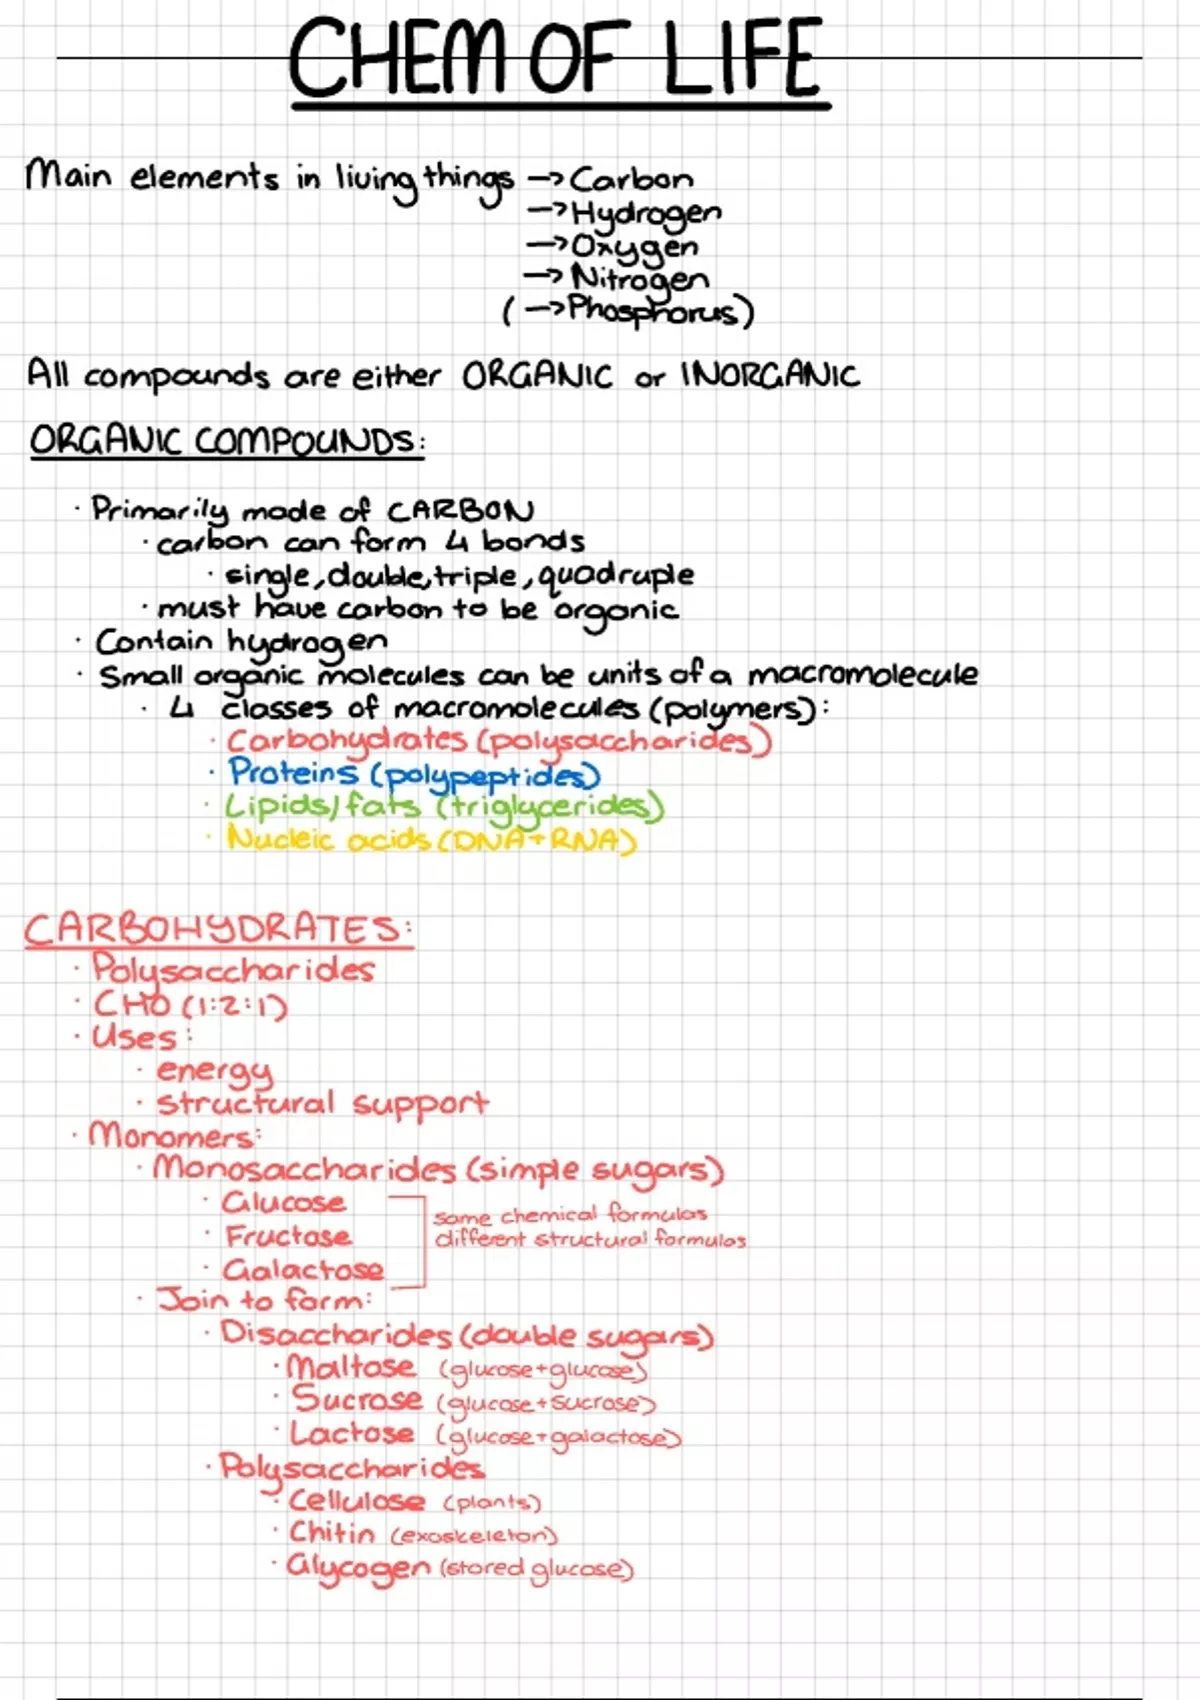 CHEM OF LIFE
Main elements in living things → Carbon
→ Hydrogen
→ Oxygen
→ Nitrogen
( → Phosphorus)
All compounds are either ORGANIC or INORGANIC
ORGANIC COMPOUNDS:
· Primarily made of CARBON
· carbon can form 4 bonds
· single, double, triple, quadruple
· must have carbon to be organic
· Contain hydrogen
· Small organic molecules can be units of a macromolecule
· 4 classes of macromolecules (polymers):
· Carbohydrates (polysaccharides)
· Proteins (polypeptides)
· Lipids/fats (triglycerides)
· Nucleic acids (DNA + RNA)
CARBOHYDRATES:
· Polysaccharides
· CHO (1:2:1)
· Uses:
· energy
· structural support
· Monomers:
· Monosaccharides (simple sugars)
· Glucose
same chemical formulas
· Fructose
different structural formulas
· Galactose
· Join to form:
· Disaccharides (double sugars)
· Maltose (glucose+glucose)
· Sucrose (glucose+sucrose)
· Lactose (glucose+galactose)
· Polysaccharides
· Cellulose (plants)
· Chitin (exoskeleton)
· Glycogen (stored glucose)